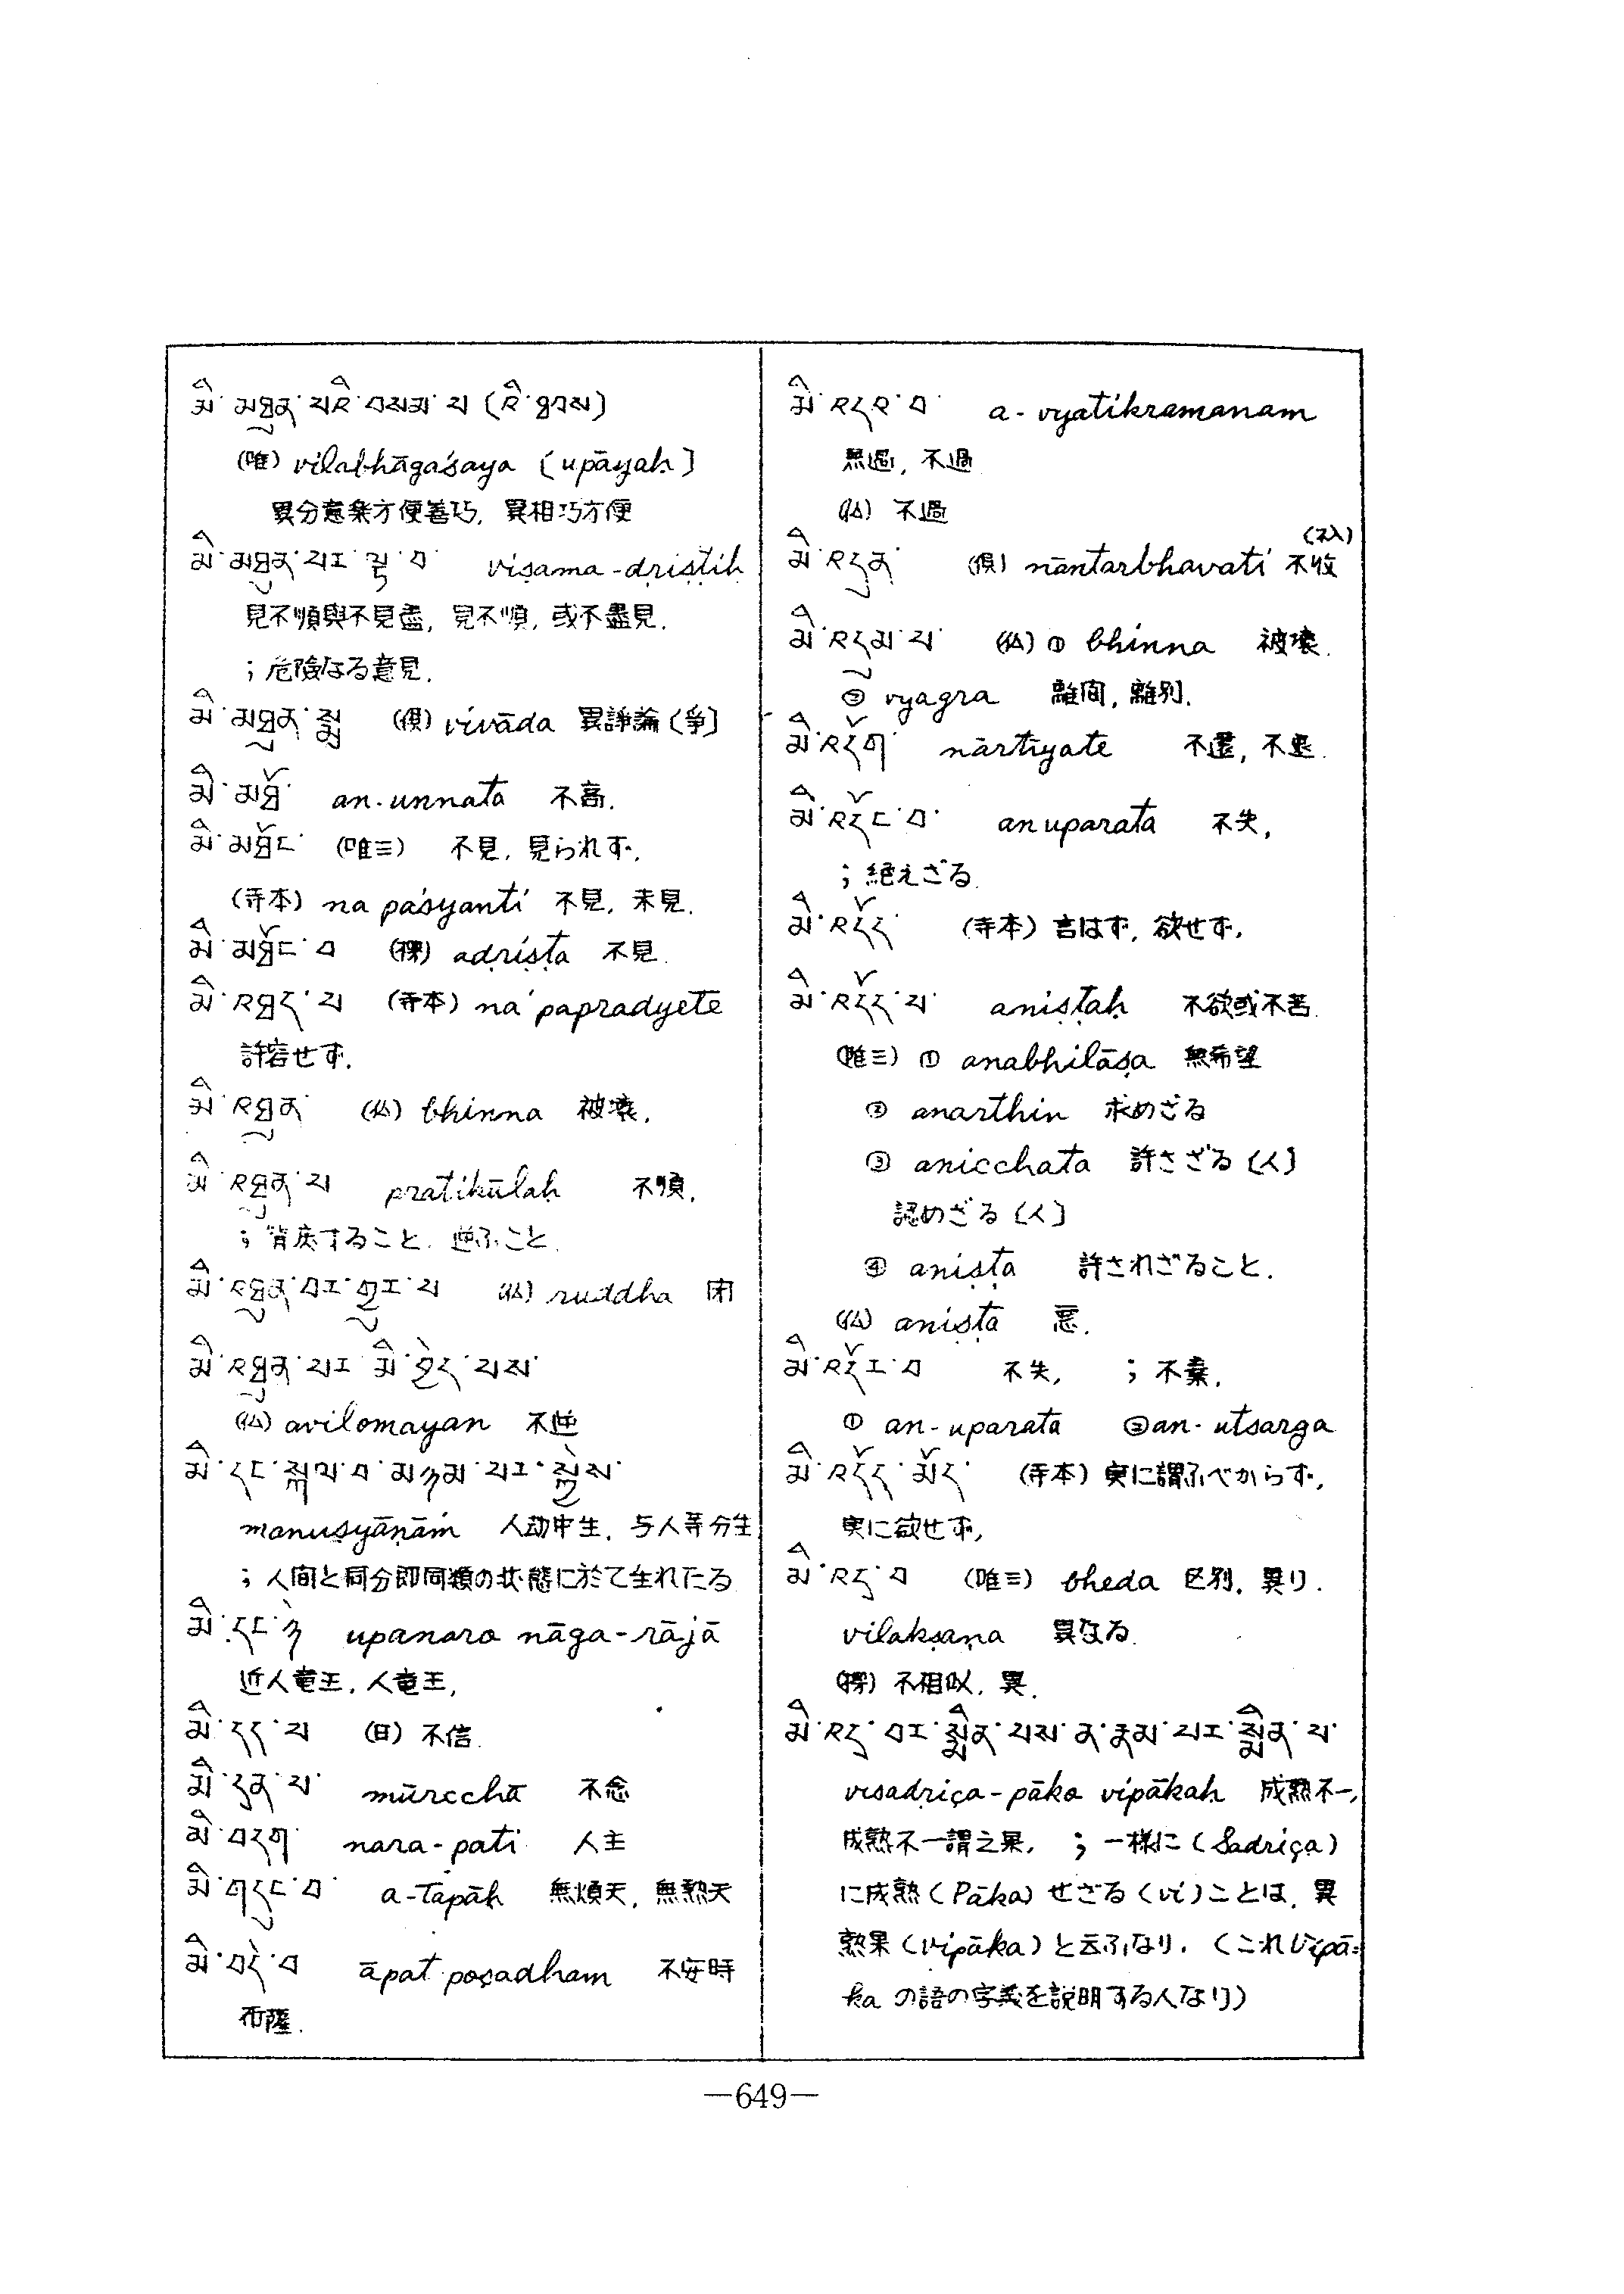 མི་མཐུན་པའི་བསམ་པ་(འི་ཐབས)
(唯) vilabhāgaśaya (upāyaḥ)
異分意樂方便善巧, 異相巧方便
མི་མཐུན་པར་ལྟ་བ་ viṣama-dṛiṣṭiḥ
見不順與不見盡, 見不順, 或不盡見.
; 危險なる意見.
མི་མཐུན་སྨྲ (倶) vivāda 異諍論(争)
མི་མཐོ་ an-unnata 不高.
མི་མཐོང་ (唯三) 不見, 見られず,
(寺本) na paśyanti 不見, 未見.
མི་མཐོང་བ (稱) adṛiṣṭa 不見.
མི་འཐད་པ (寺本) na'papradyete
許容せず.
མི་འཐུན་ (仏) bhinna 被壞.
མི་འཐུན་པ pratikūlaḥ 不順.
; 背戻すること. 逆ふこと.
མི་འཐུན་པར་གྱུར་པ (仏) ruddha 閉
མི་འཐུན་པར་མི་བྱེད་པས་
(仏) avilomayan 不逆
མི་དང་སྐལ་བ་མཉམ་པར་སྐྱེས་
manuṣyāṇāṁ 人劫中生, 与人等分生
; 人間と同分即同類の状態に於て生れたる
མི་དང་ཉེ upanaro nāga-rājā
近人竜王, 人竜王,
མི་དད་པ (日) 不信.
མི་དྲན་པ་ mūrcchā 不念
མི་བདག་ nara-pati 人主
མི་གདུང་བ་ a-tapāḥ 無煩天, 無熱天
མི་བདེ་བ āpat poṣadham 不安時
布薩.
མི་འདའ་བ་ a-vyatikramanam
無過, 不過
(仏) 不過
མི་འདུན་ (倶) nāntarbhavati 不收(入)
མི་འདུམ་པ་ (仏) ① bhinna 被壞.
② vyagra 離間, 離別.
མི་འདོག་ nārtīyate 不還, 不退.
མི་འདོང་བ་ anuparata 不失,
; 絶えざる.
མི་འདོད་ (寺本) 言はず, 欲せず,
མི་འདོད་པ་ aniṣṭaḥ 不欲或不苦.
(唯三) ① anabhilāṣa 無希望
② anarthin 求めざる
③ anicchata 許さざる(人)
認めざる(人)
④ aniṣṭa 許されざること.
(仏) aniṣṭa 悪.
མི་འདོར་བ 不失, ; 不棄.
① an-uparata ② an-utsarga
མི་འདོད་མོད་ (寺本) 実に謂ふべからず,
実に欲せず,
མི་འདྲ་བ (唯三) bheda 区別, 異り.
vilakṣaṇa 異なる.
(稱) 不相似, 異.
མི་འདྲ་བར་སྨིན་པས་ན་རྣམ་པར་སྨིན་པ་
visadriça-pāko vipākaḥ 成熟不一,
成熟不一謂之果. ; 一様に(Sadriça)
に成熟(Pāka)せざる(vi)ことは, 異
熟果(vipāka)と云ふなり. (これ Vipā-
ka の語の字義を説明する人なり)
—649—